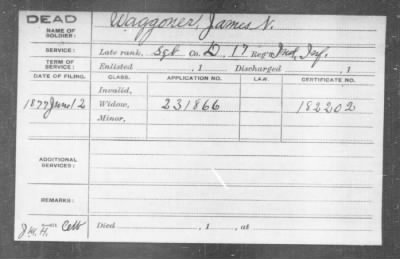 DEAD
NAME OF SOLDIER: Waggoner, James N.
SERVICE: Late rank, Sgt Co. D, 17 Reg't Ind. Inf.
TERM OF SERVICE: Enlisted , 1 Discharged , 1
DATE OF FILING. CLASS. APPLICATION NO. LAW. CERTIFICATE NO.
Invalid,
1877 June 12 Widow, 231866 182202
Minor,
ADDITIONAL SERVICES:
REMARKS:
Died , 1 , at